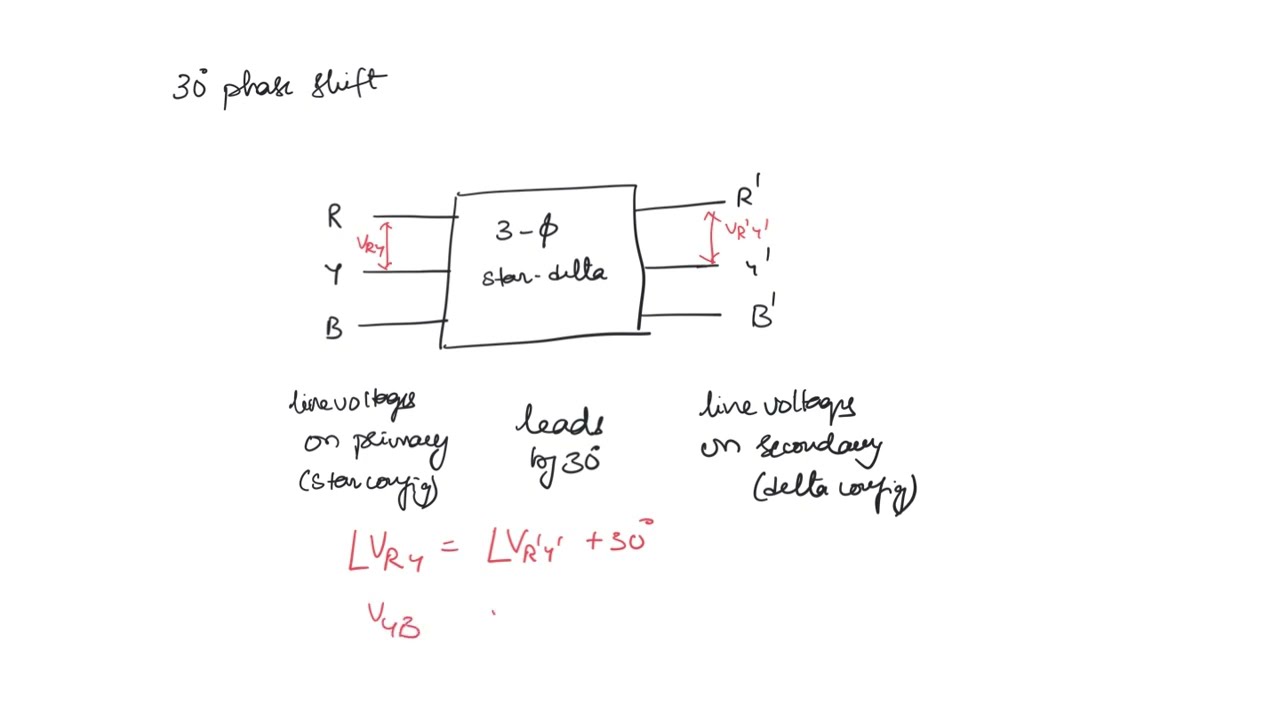 30° phase shift
R
R'
3-ϕ
V_RY
V_R'Y'
Y
star-delta
Y'
B
B'
line voltages
on primary
(star config)
leads
by 30°
line voltages
on secondary
(delta config)
∠V_RY = ∠V_R'Y' + 30°
V_YB